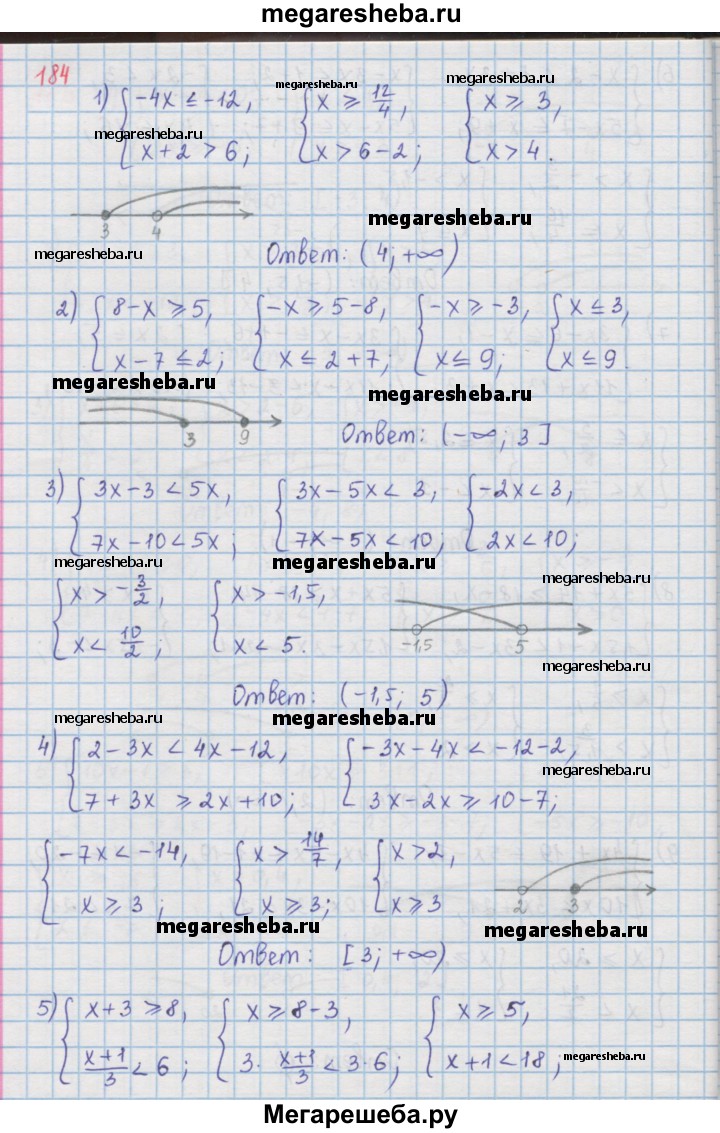 megaresheba.ru
184
1) { -4x ≤ -12, { x ≥ 12/4, { x ≥ 3,
x + 2 > 6; x > 6 - 2; x > 4.
megaresheba.ru
megaresheba.ru
megaresheba.ru
3 4
megaresheba.ru
megaresheba.ru
Ответ: (4; +∞)
2) { 8 - x ≥ 5, { -x ≥ 5 - 8, { -x ≥ -3, { x ≤ 3,
x - 7 ≤ 2; x ≤ 2 + 7; x ≤ 9; x ≤ 9.
megaresheba.ru
megaresheba.ru
3 9
Ответ: (-∞; 3]
3) { 3x - 3 < 5x, { 3x - 5x < 3, { -2x < 3,
7x - 10 < 5x; 7x - 5x < 10, 2x < 10;
megaresheba.ru
megaresheba.ru
{ x > -3/2, { x > -1,5,
x < 10/2; x < 5.
-1,5 5
megaresheba.ru
Ответ: (-1,5; 5)
megaresheba.ru
megaresheba.ru
4) { 2 - 3x < 4x - 12, { -3x - 4x < -12 - 2,
7 + 3x ≥ 2x + 10; 3x - 2x ≥ 10 - 7;
megaresheba.ru
{ -7x < -14, { x > 14/7, { x > 2,
x ≥ 3; x ≥ 3; x ≥ 3
2 3
megaresheba.ru
megaresheba.ru
Ответ: [3; +∞)
5) { x + 3 ≥ 8, { x ≥ 8 - 3, { x ≥ 5,
(x+1)/3 < 6; 3 · (x+1)/3 < 3·6; x + 1 < 18;
megaresheba.ru
Мегарешеба.ру